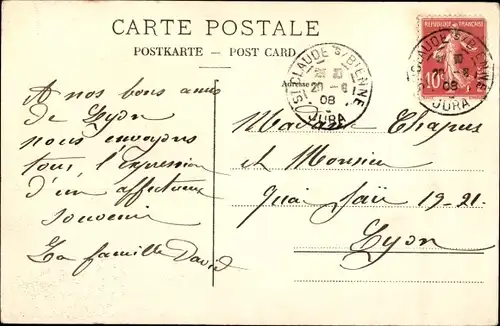 CARTE POSTALE
POSTKARTE - POST CARD
Adresse
ST CLAUDE S/BIENNE
20 - 8
08
JURA
REPUBLIQUE FRANÇAISE
10c
ST CLAUDE S/BIENNE
20 - 8
08
JURA
A nos bons amis
de Lyon
nous envoyons
tous, l'Expression
d'un affectueux
souvenir
La famille David
Madame Chapus
et Monsieur
Quai 19-21-
Lyon